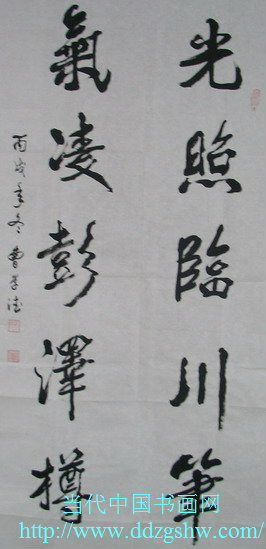 光照臨川筆
氣凌彭澤樽
丙戌年冬 曹
当代中国书画网
http://www.ddzgshw.com/